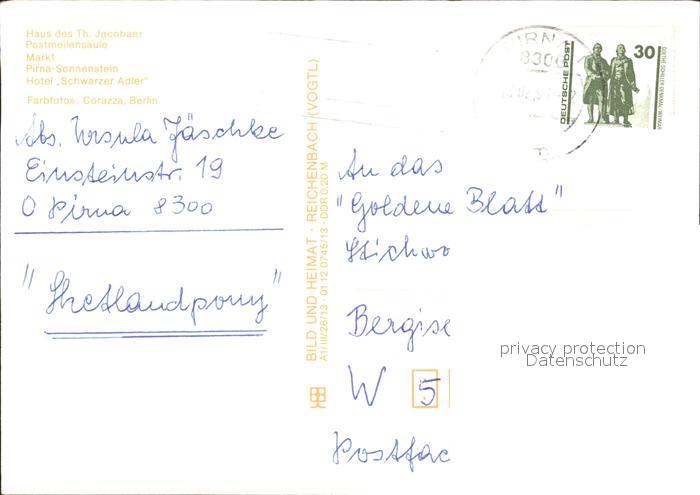 Haus des Th. Jacobaer
Postmeilensäule
Markt
Pirna-Sonnenstein
Hotel „Schwarzer Adler"
Farbfotos: Corazza, Berlin
Abs. Ursula Jäschke
Einsteinstr. 19
O Pirna 8300
"Shetlandpony"
BILD UND HEIMAT · REICHENBACH (VOGTL)
A1/III/26/13 · 01 12 0745/13 · DDR 0,20 M
PIRNA
8300
DEUTSCHE POST
30
GOETHE-SCHILLER-DENKMAL, WEIMAR
An das
"Goldene Blatt"
Stichwo
Bergise
W 5
Postfac
privacy protection
Datenschutz